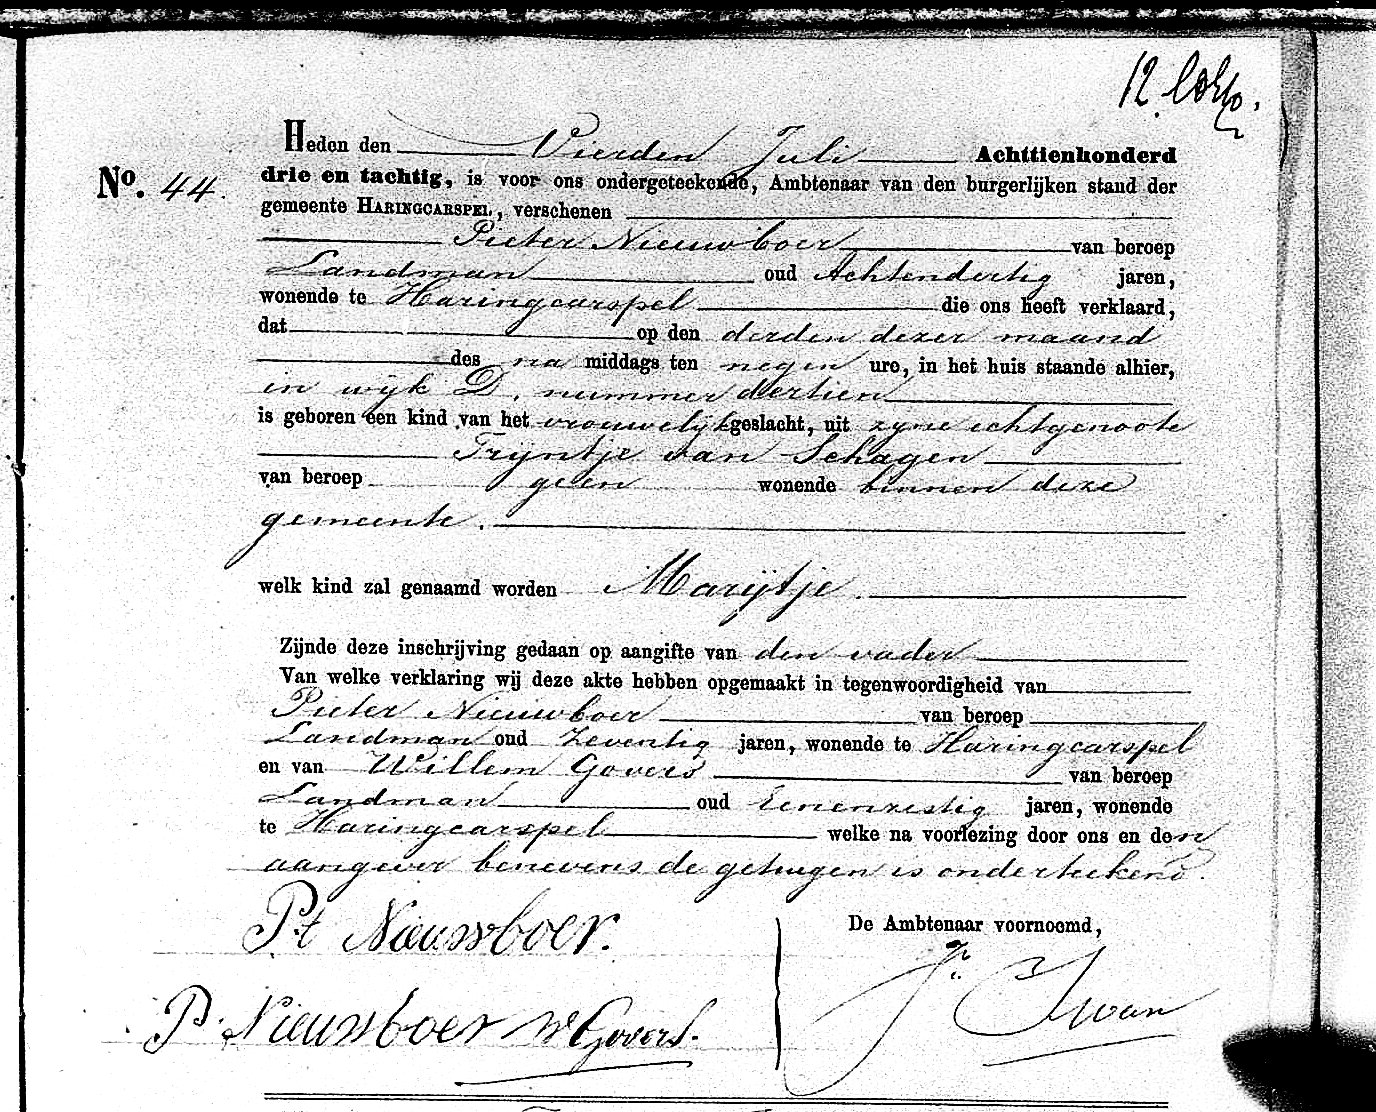 12.
Heden den Vierden Juli Achttienhonderd
No. 44. drie en tachtig, is voor ons ondergeteekende, Ambtenaar van den burgerlijken stand der
gemeente HARINGCARSPEL, verschenen
Pieter Nieuwboer van beroep
Landman oud Achtendertig jaren,
wonende te Haringcarspel die ons heeft verklaard,
dat op den derden dezer maand
des na middags ten negen ure, in het huis staande alhier,
in wijk D, nummer dertien
is geboren een kind van het vrouwelijk geslacht, uit zyne echtgenoote
Trijntje van Schagen
van beroep geen wonende binnen deze
gemeente.
welk kind zal genaamd worden Marijtje.
Zijnde deze inschrijving gedaan op aangifte van den vader
Van welke verklaring wij deze akte hebben opgemaakt in tegenwoordigheid van
Pieter Nieuwboer van beroep
Landman oud Zeventig jaren, wonende te Haringcarspel
en van Willem Govers van beroep
Landman oud Eenenzestig jaren, wonende
te Haringcarspel welke na voorlezing door ons en den
aangever benevens de getuigen is onderteekend.
Pt Nieuwboer.
De Ambtenaar voornoemd,
P. Nieuwboer W Govers.